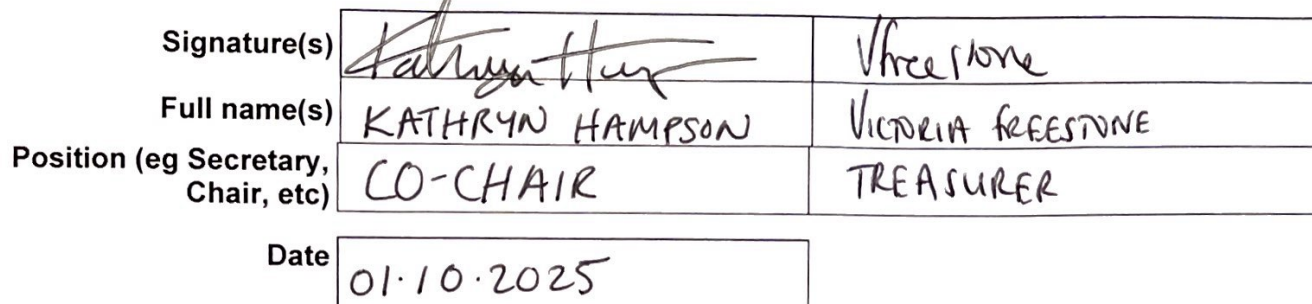 Signature(s) Kathryn Ham Vfreestone
Full name(s) KATHRYN HAMPSON VICTORIA FREESTONE
Position (eg Secretary, CO-CHAIR TREASURER
Chair, etc)
Date 01.10.2025